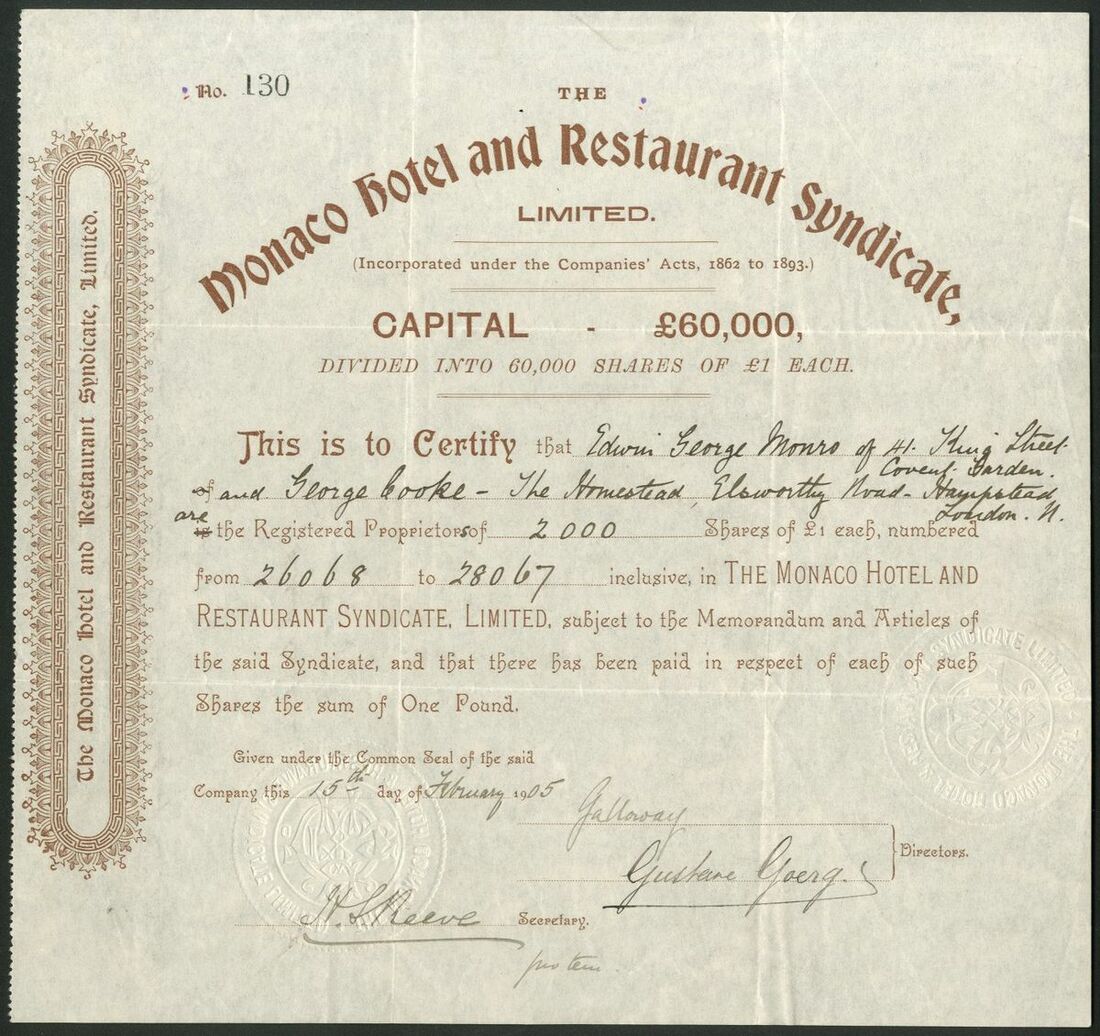 No. 130
THE
Monaco Hotel and Restaurant Syndicate,
LIMITED.
(Incorporated under the Companies' Acts, 1862 to 1893.)
CAPITAL - £60,000,
DIVIDED INTO 60,000 SHARES OF £1 EACH.
The Monaco Hotel and Restaurant Syndicate, Limited.
This is to Certify that Edwin George Monro of 41. King Street
Covent Garden.
of and George Cooke - The Homestead, Elsworthy Road - Hampstead
London. N.
are
is the Registered Proprietors of 2000 Shares of £1 each, numbered
from 26068 to 28067 inclusive, in THE MONACO HOTEL AND
RESTAURANT SYNDICATE, LIMITED, subject to the Memorandum and Articles of
the said Syndicate, and that there has been paid in respect of each of such
Shares the sum of One Pound.
Given under the Common Seal of the said
Company this 15th day of February 1905
Galloway
Gustave Goerg.
Directors.
H. S. Reeve Secretary.
pro tem.
SYNDICATE LIMITED THE MONACO HOTEL